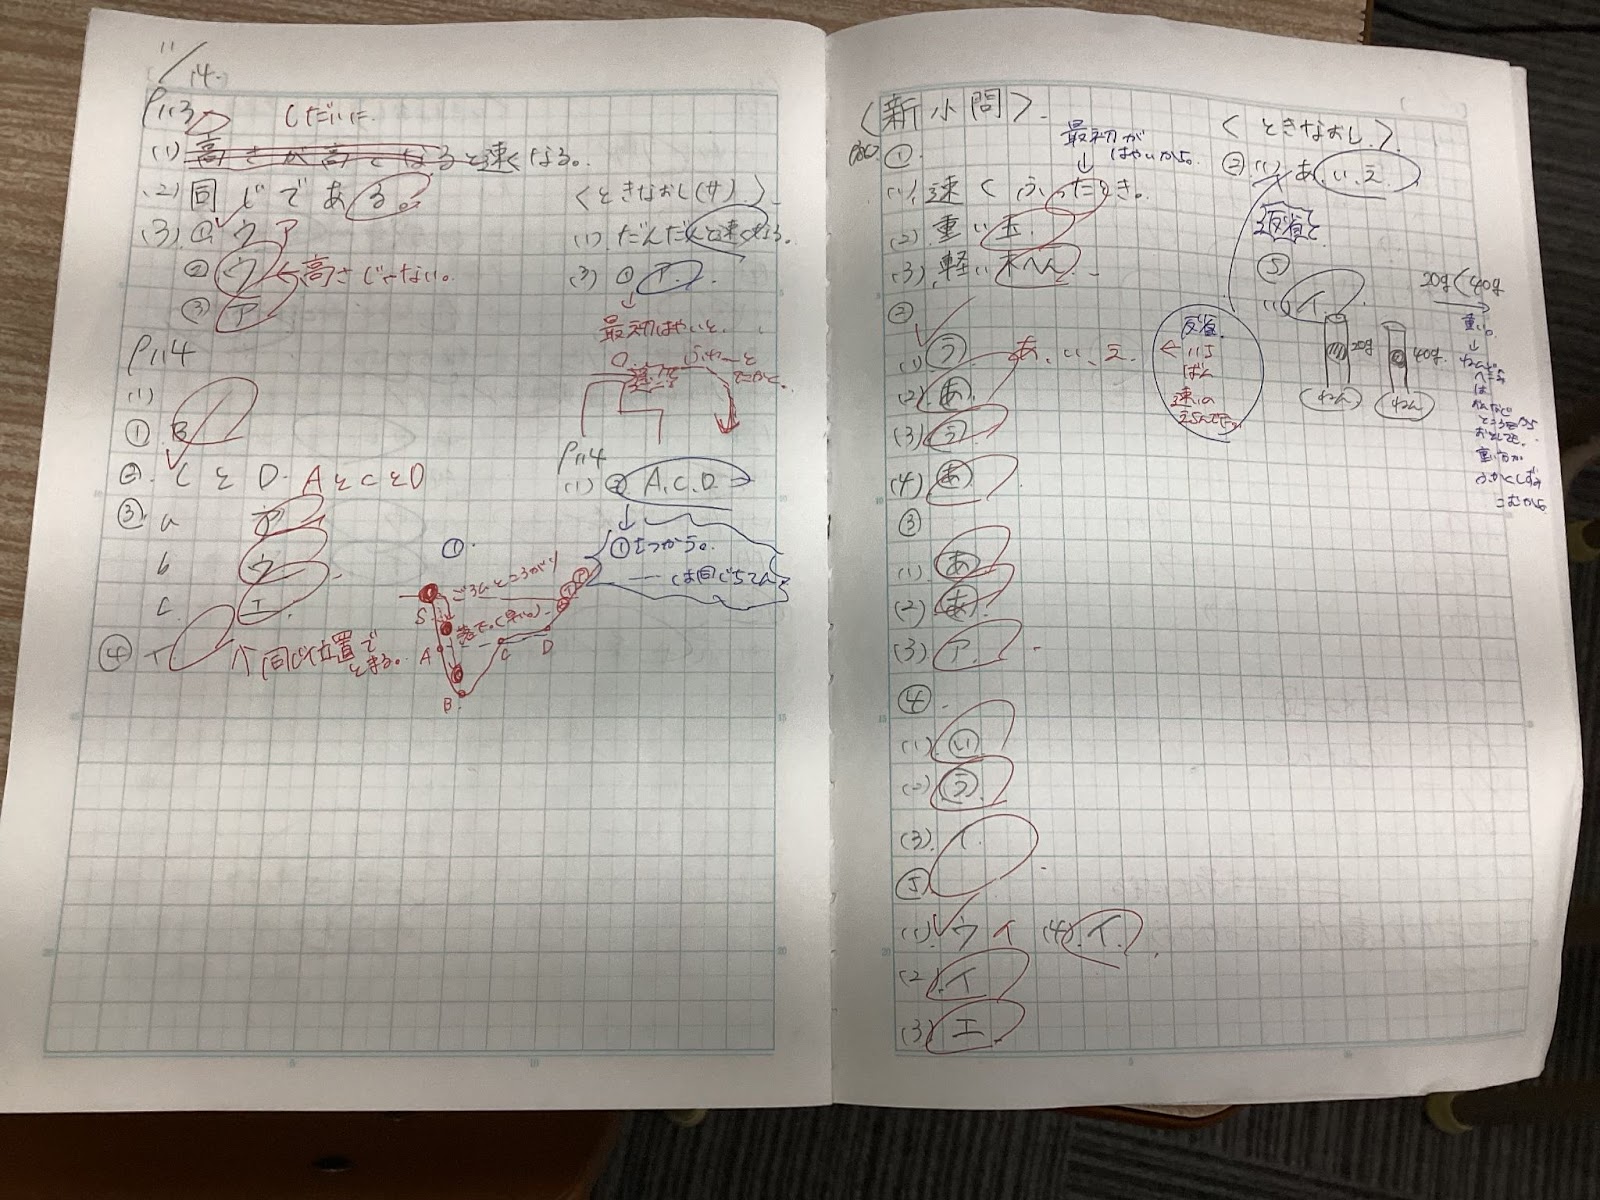 11/14.
P113 しだいに
(1) 高さが高くなると速くなる。
(2) 同じである。
(3) ① ウ ア
② ウ ←高さじゃない。
③ ア
P114
(1)
① B
② CとD. AとCとD
③ a ア
b ウ
c エ
④ イ ↑同じ位置でとまる。
<ときなおし(サ)>
(1) だんだんと速くなる。
(3) ① ア.
↓
最初はやいと、
P114
(1) ② A.C.D.
↓
①
ころがり
S
A
B
C
D
<新小問>
①
最初が
はやいから。
↓
(1) 速くふったとき。
(2) 重い玉
(3) 軽い木へん
②
(1) う あ、い、え. ←
(2) あ
(3) う
(4) あ
③
(1) あ
(2) あ
(3) ア.
④
(1) い
(2) う
(3) イ
⑤
(1) ウ イ (4) イ.
(2) イ
(3) エ
<ときなおし>
② (1) あ い、え.
反省
⑤
(1) イ
20g 40g
20g 40g.
反省.
いち
ばん
速いの
重い。
↓
は
重い方が